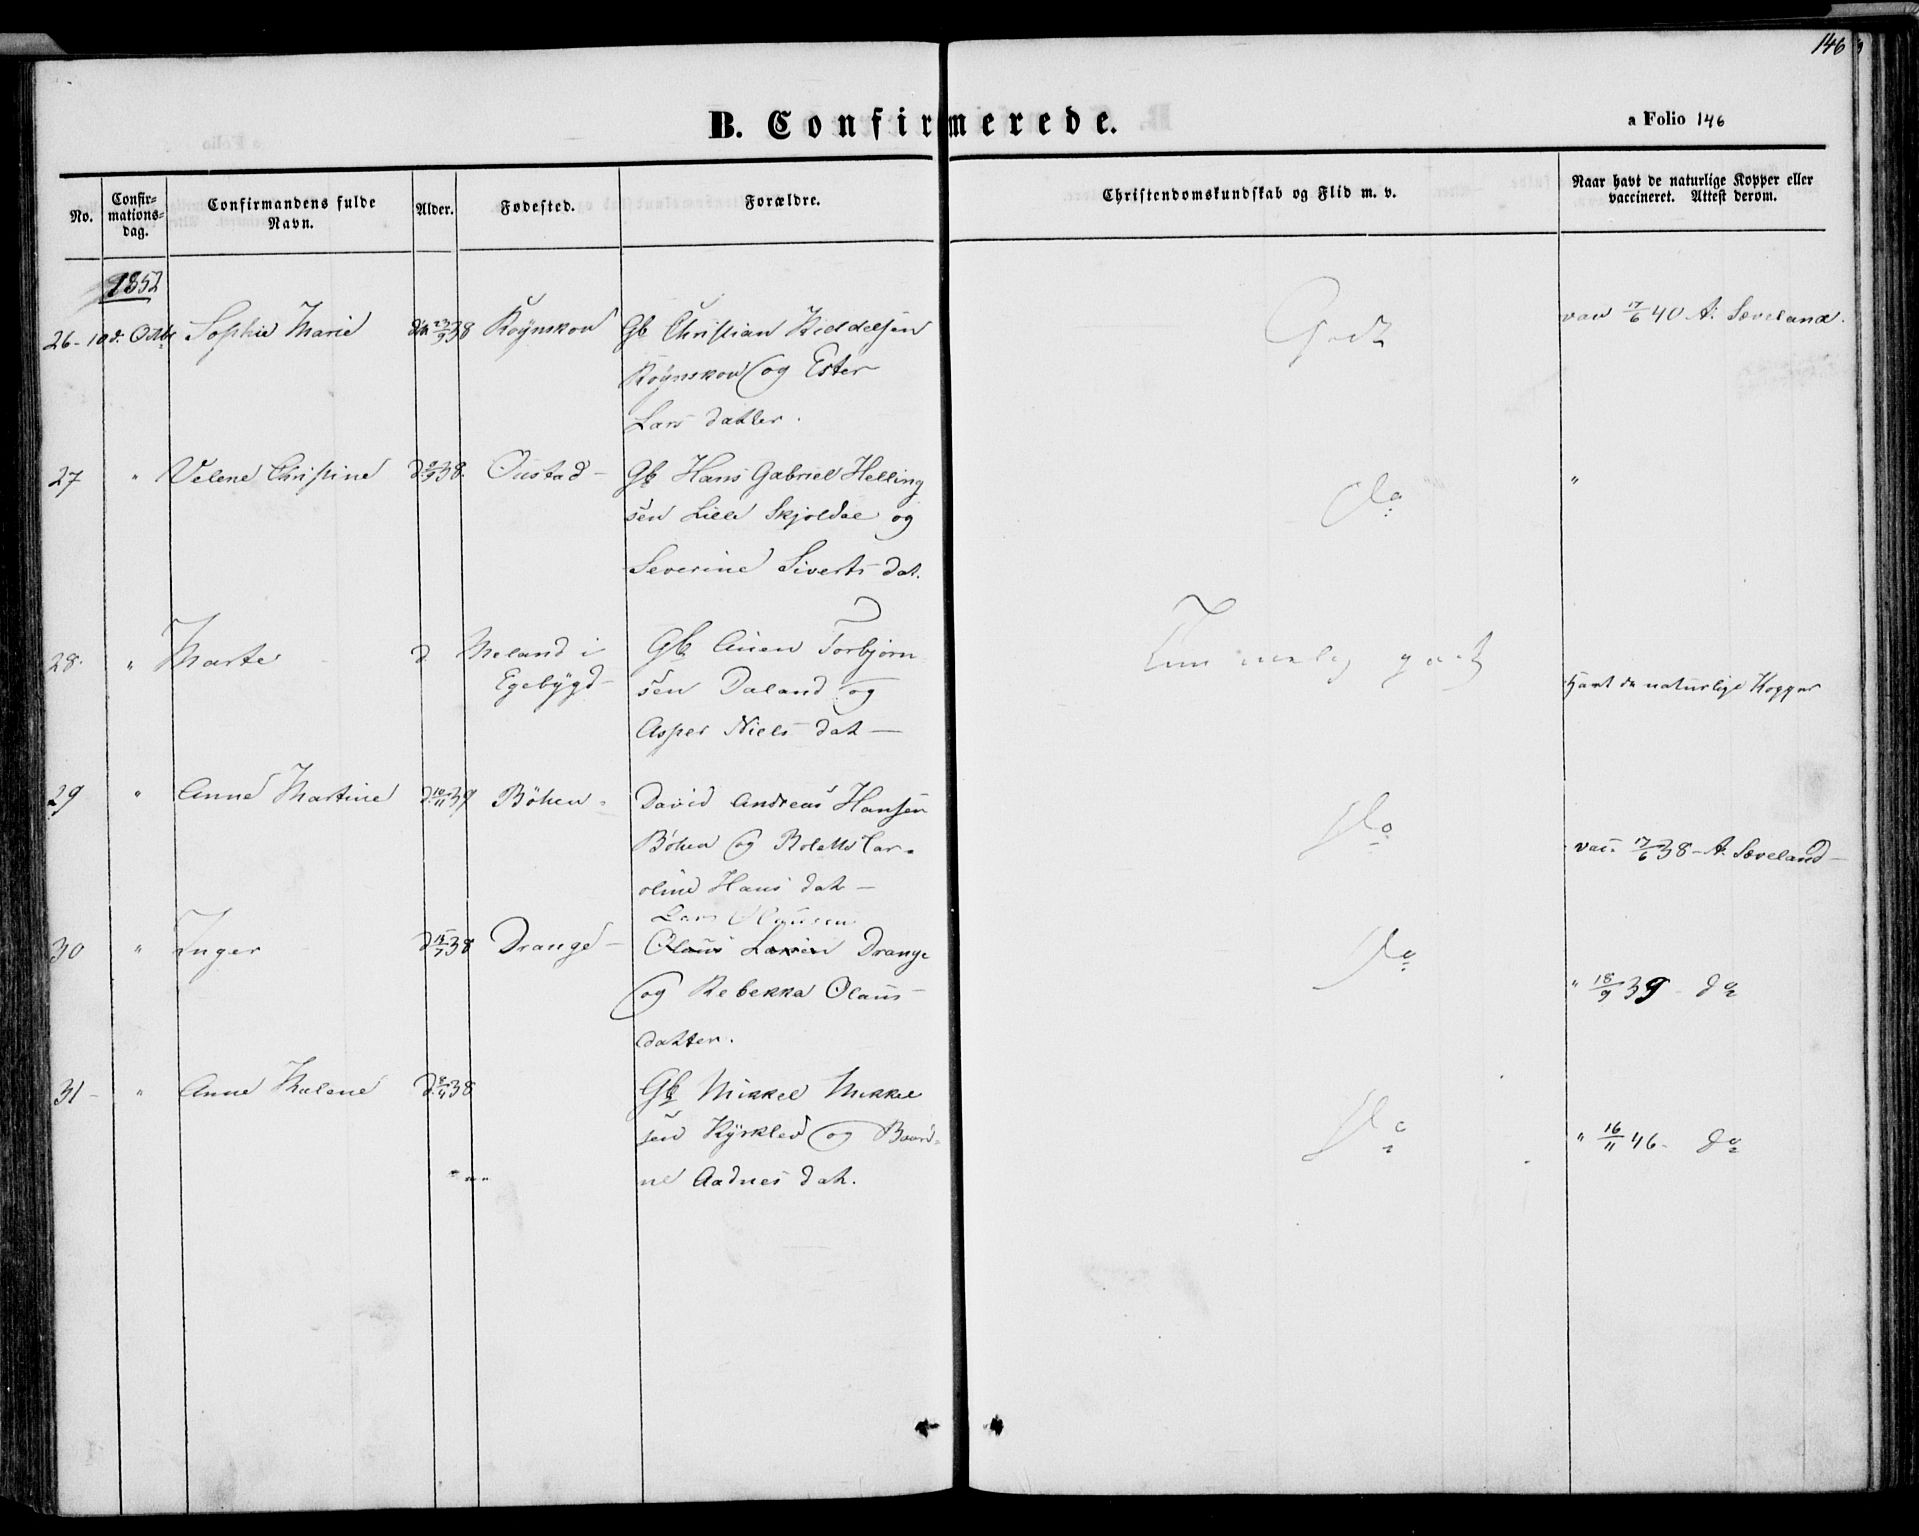 146
B. Confirmerede.
a Folio 146
No.
Confir-
mations-
dag.
Confirmandens fulde
Navn.
Alder.
Fødested.
Forældre.
Christendomskundskab og Flid m. v.
Naar havt de naturlige Kopper eller
vaccineret. Attest derom.
1852
26 - 10d. Octbr Sophie Marie 23/9 38 Röynskov Gb Christian Kieddelsen
Röynskov og Ester
Lars datter.
Godt
vac 17/6 40 A. Sæveland.
27 " Velene Christine 38. Oustad - Gb Hans Gabriel Helling
sen Lille Skjoldal og
Severine Siverts dat.
do
"
28. " Marte d Meland i Gb Anen Torbjørn
Egebÿgd - sen Daland og
Asper Niels dat -
Temmelig godt
Havt de naturlige Kopper
29 " Anne Martine d 10/11 39 Böhen - David Andreas Hansen
Böhen og Rolette Car-
oline Hans dat -
do
vac. 17/6 38 - A. Sæveland -
30 " Inger d 15/7 38 Drange -
Lars Olausen
Olaus Larsen Drange
og Rebekka Olaus-
datter.
do
" 18/9 39 - do
31 - " Anne Malene 38 Gb Mikkel Mikkel
sen Kÿrklev og Baard-
ne Aadnes dat.
do
" 16/11 46 - do